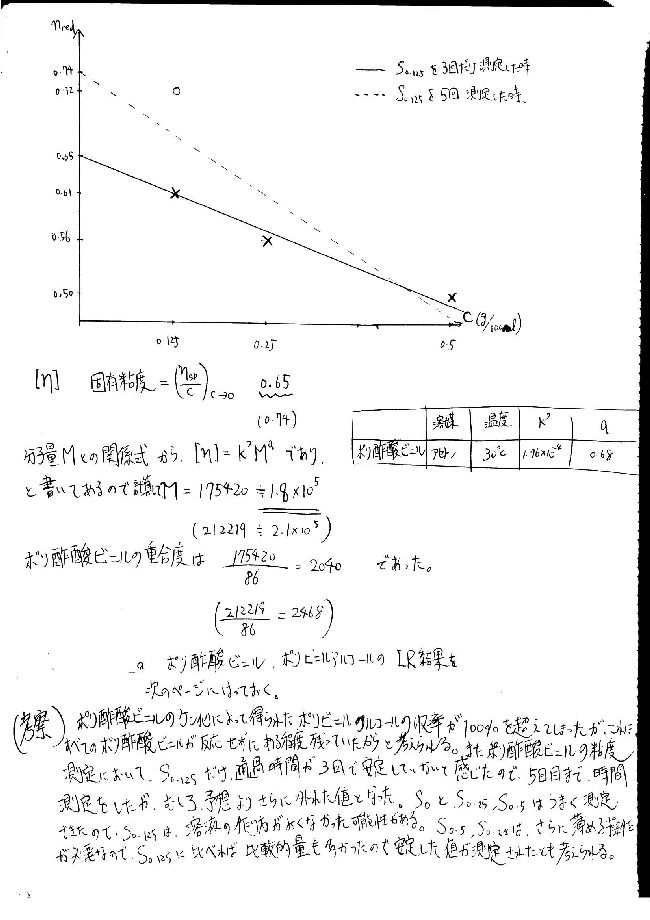 ηred
0.74
0.72
0.65
0.61
0.56
0.50
0.125
0.25
0.5
C (g/100ml)
S0.125を3回だけ測定した時
S0.125を5回測定した時.
[η] 固有粘度 = (ηsp/C)C→0 0.65
(0.74)
溶媒 温度 K' a
ポリ酢酸ビニール アセトン 30℃ 1.76×10-4 0.68
分子量Mとの関係式から、[η] = K'Maであり、
と書いてあるので M = 175420 ≒ 1.8×105
(212219 ≒ 2.1×105)
ポリ酢酸ビニールの重合度は 175420/86 = 2040 であった。
(212219/86 = 2468)
ポリ酢酸ビニール、ポリビニールアルコールのIR結果を
次のページにはっておく。
(考察) ポリ酢酸ビニールのケン化によって得られたポリビニールアルコールの収率が100%を超えてしまったが、これは
すべてのポリ酢酸ビニールが反応せずにある程度残っていたからと考えられる。またポリ酢酸ビニールの粘度
測定において、S0.125だけ通過時間が3回で安定していないと感じたので、5回目まで、時間
測定をしたが、むしろ予想よりさらに外れた値となった。S0とS0.25、S0.5はうまく測定
できたので、S0.125は、溶液の作り方がよくなかった可能性もある。S0.5、S0.25は、さらに薄める操作
が必要なので、S0.125に比べれば比較的量も多かったので安定した値が測定されたとも考えられる。